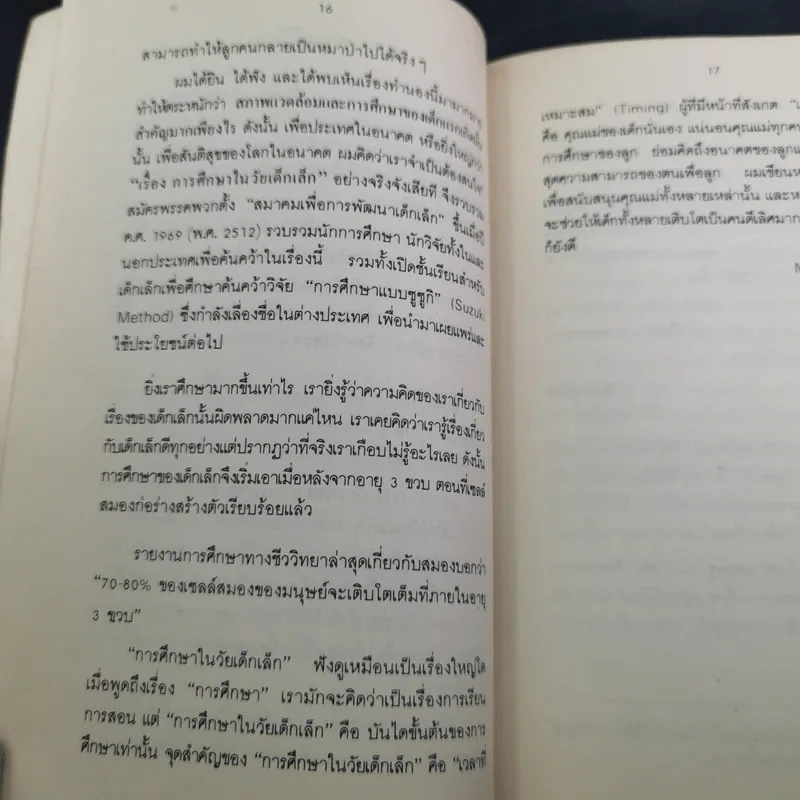 16
สามารถทำให้ลูกคนกลายเป็นหมาป่าไปได้จริง ๆ
ผมได้ยิน ได้ฟัง และได้พบเห็นเรื่องทำนองนี้มามากมาย
ทำให้ตระหนักว่า สภาพแวดล้อมและการศึกษาของเด็กแรกเกิดนั้น
สำคัญมากเพียงไร ดังนั้น เพื่อประเทศในอนาคต หรือยิ่งใหญ่กว่า
นั้น เพื่อสันติสุขของโลกในอนาคต ผมคิดว่าเราจำเป็นต้องสนใจ
“เรื่อง การศึกษาในวัยเด็กเล็ก” อย่างจริงจังเสียที จึงรวบรวม
สมัครพรรคพวกตั้ง “สมาคมเพื่อการพัฒนาเด็กเล็ก” ขึ้นเมื่อปี
ค.ศ. 1969 (พ.ศ. 2512) รวบรวมนักการศึกษา นักวิจัยทั้งในและ
นอกประเทศเพื่อค้นคว้าในเรื่องนี้ รวมทั้งเปิดชั้นเรียนสำหรับ
เด็กเล็กเพื่อศึกษาค้นคว้าวิจัย “การศึกษาแบบซูซูกิ” (Suzuki
Method) ซึ่งกำลังเลื่องชื่อในต่างประเทศ เพื่อนำมาเผยแพร่และ
ใช้ประโยชน์ต่อไป
ยิ่งเราศึกษามากขึ้นเท่าไร เรายิ่งรู้ว่าความคิดของเราเกี่ยวกับ
เรื่องของเด็กเล็กนั้นผิดพลาดมากแค่ไหน เราเคยคิดว่าเรารู้เรื่องเกี่ยว
กับเด็กเล็กดีทุกอย่างแต่ปรากฏว่าที่จริงเราเกือบไม่รู้อะไรเลย ดังนั้น
การศึกษาของเด็กเล็กจึงเริ่มเอาเมื่อหลังจากอายุ 3 ขวบ ตอนที่เซลล์
สมองก่อร่างสร้างตัวเรียบร้อยแล้ว
รายงานการศึกษาทางชีววิทยาล่าสุดเกี่ยวกับสมองบอกว่า
“70-80% ของเซลล์สมองของมนุษย์จะเติบโตเต็มที่ภายในอายุ
3 ขวบ”
“การศึกษาในวัยเด็กเล็ก” ฟังดูเหมือนเป็นเรื่องใหญ่โต
เมื่อพูดถึงเรื่อง “การศึกษา” เรามักจะคิดว่าเป็นเรื่องการเรียน
การสอน แต่ “การศึกษาในวัยเด็กเล็ก” คือ บันไดขั้นต้นของการ
ศึกษาเท่านั้น จุดสำคัญของ “การศึกษาในวัยเด็กเล็ก” คือ “เวลาที่
17
เหมาะสม” (Timing) ผู้ที่มีหน้าที่สังเกต
คือ คุณแม่ของเด็กนั่นเอง แน่นอนคุณแม่ทุกคน
การศึกษาของลูก ย่อมคิดถึงอนาคตของลูก
สุดความสามารถของตนเพื่อลูก ผมเขียน
เพื่อสนับสนุนคุณแม่ทั้งหลายเหล่านั้น และ
จะช่วยให้เด็กทั้งหลายเติบโตเป็นคนดีเลิศ
ก็ยังดี